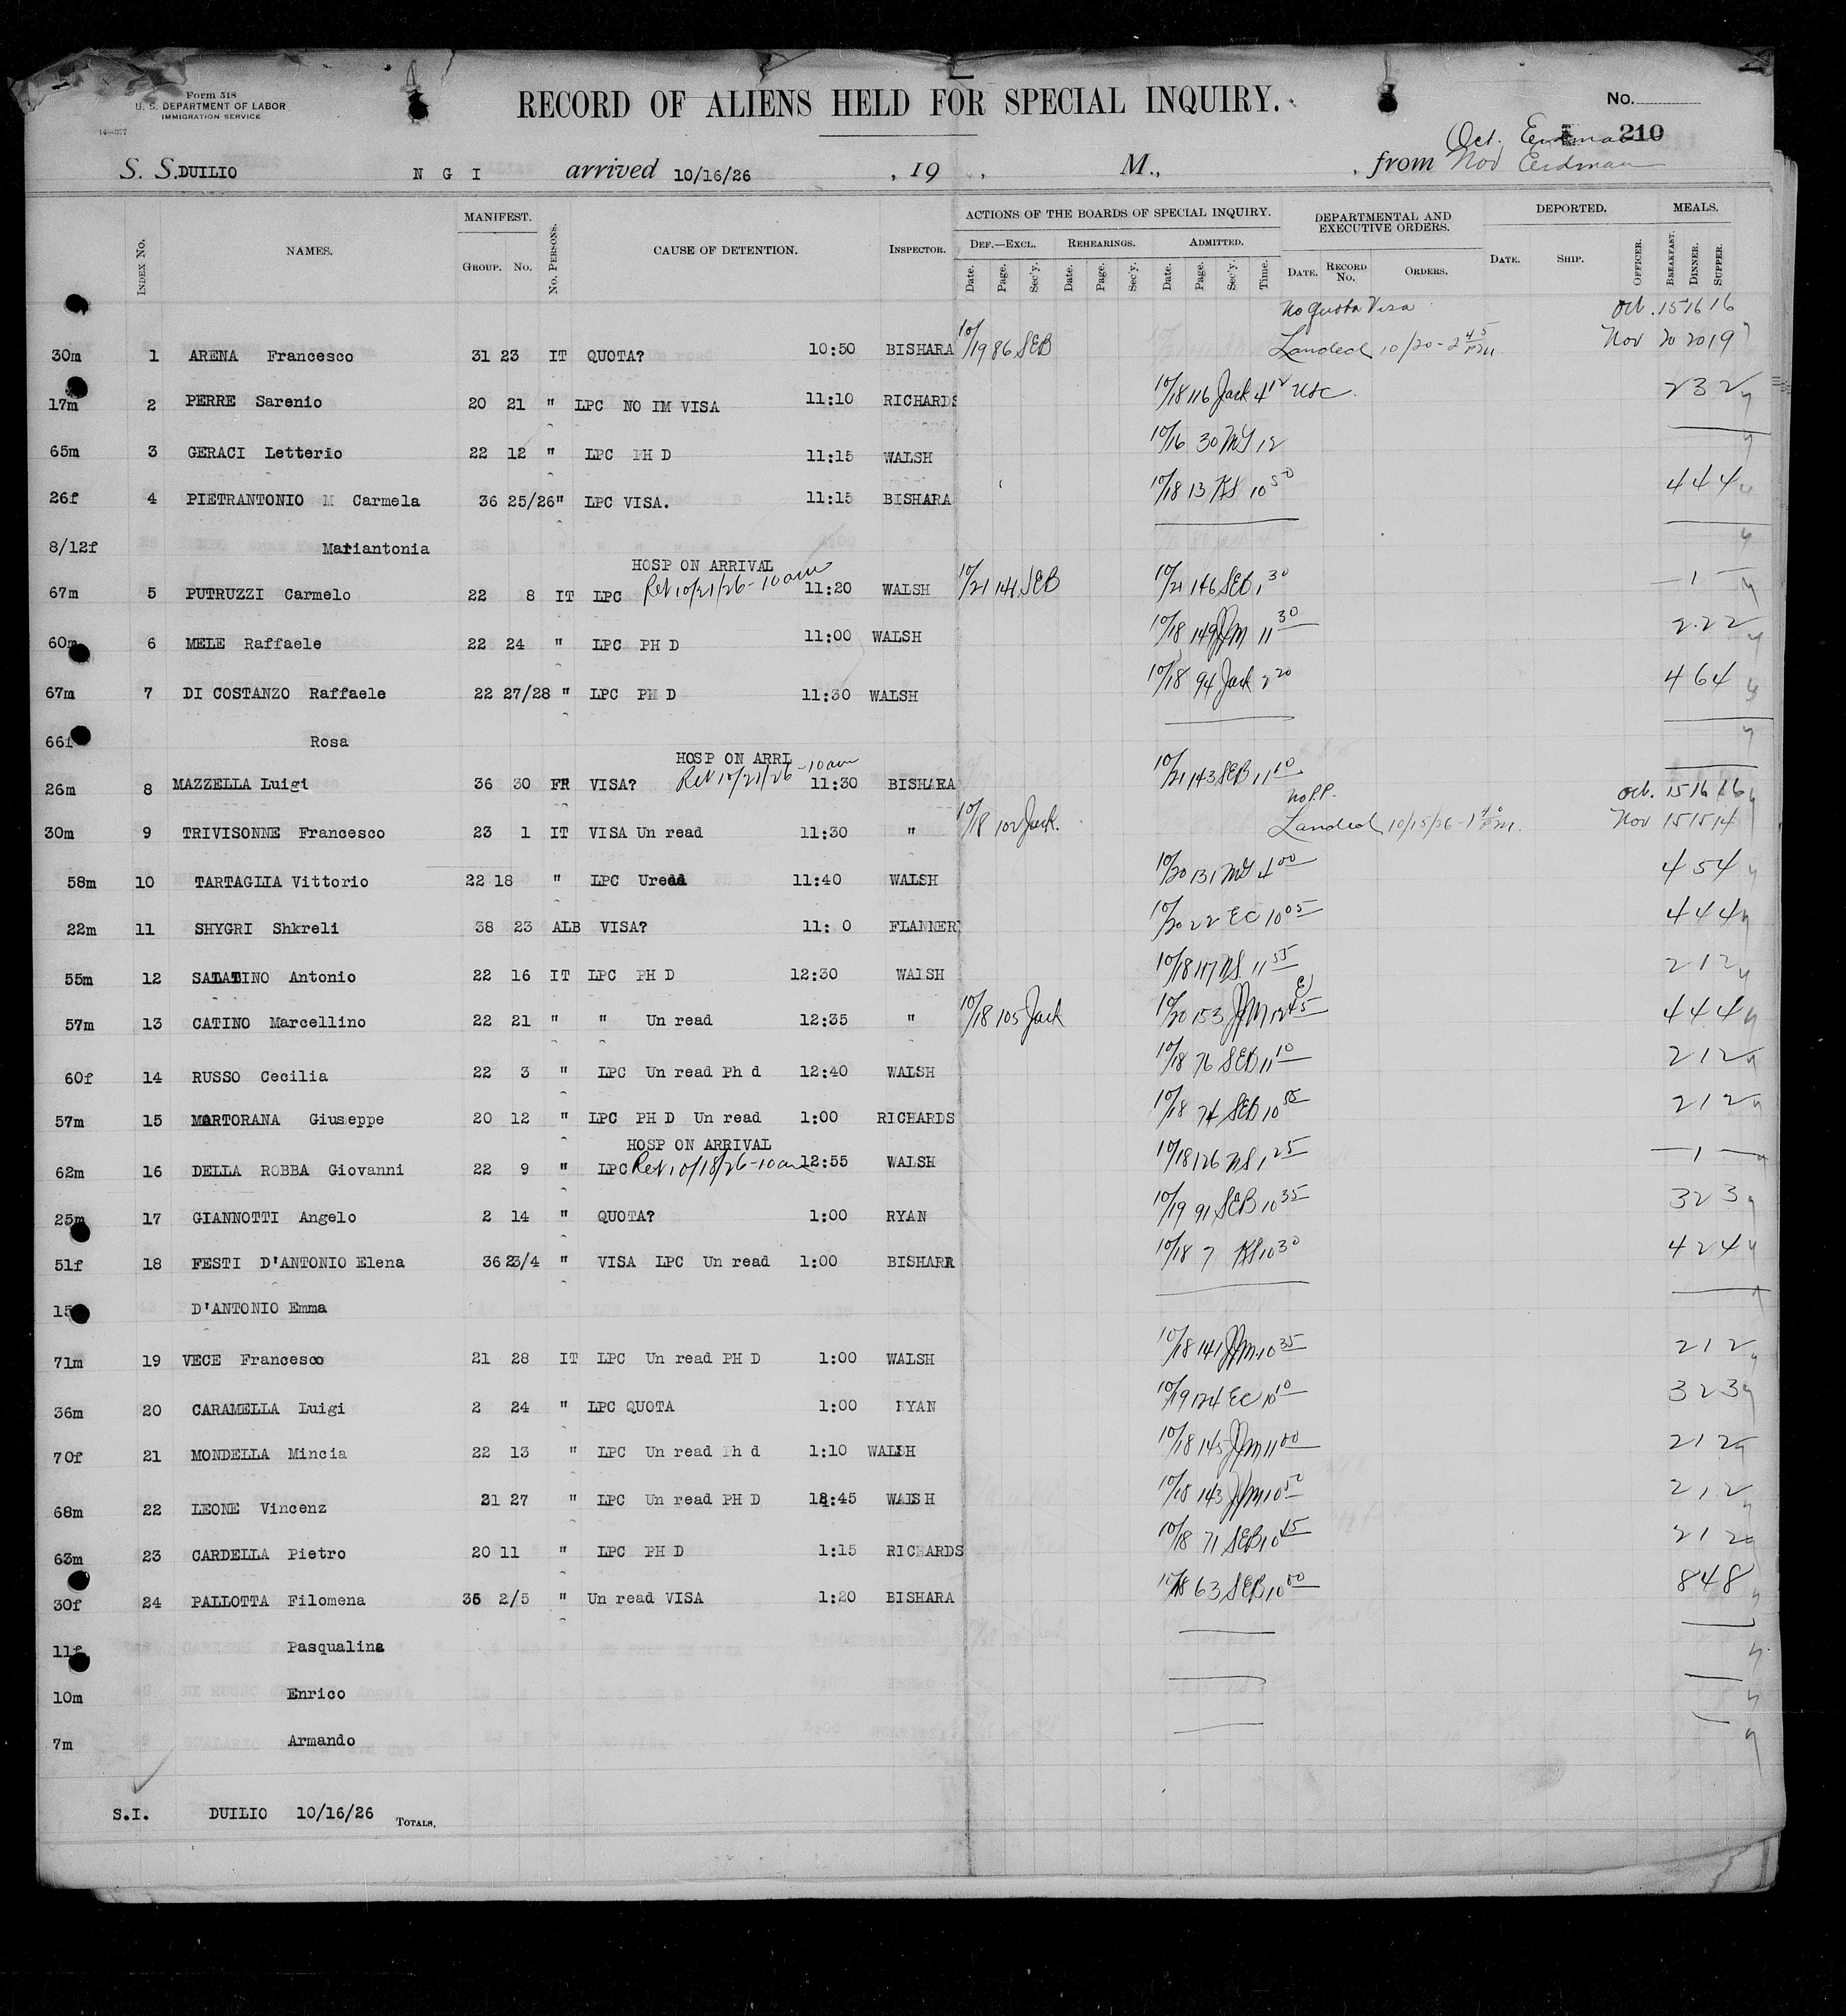 Form 518
U. S. DEPARTMENT OF LABOR
IMMIGRATION SERVICE
14—377
RECORD OF ALIENS HELD FOR SPECIAL INQUIRY.
No.
210
Oct. Erdman
S. S. DUILIO N G I arrived 10/16/26 , 19 , M., , from Nov Erdman
INDEX No. NAMES. MANIFEST. GROUP. No. No. PERSONS. CAUSE OF DETENTION. INSPECTOR. ACTIONS OF THE BOARDS OF SPECIAL INQUIRY. DEF.—EXCL. Date. Page. Sec'y. REHEARINGS. Date. Page. Sec'y. ADMITTED. Date. Page. Sec'y. Time. DEPARTMENTAL AND EXECUTIVE ORDERS. DATE. RECORD No. ORDERS. DEPORTED. DATE. SHIP. OFFICER. MEALS. BREAKFAST. DINNER. SUPPER.
No Quota Visa Oct. 15 16 16
30m 1 ARENA Francesco 31 23 IT QUOTA? 10:50 BISHARA 10/19 86 SEB Landed 10/20 - 2 45 PM. Nov 20 20 19
17m 2 PERRE Sarenio 20 21 " LPC NO IM VISA 11:10 RICHARDS 10/18 116 Jack 4 12 USC. 2 3 2
65m 3 GERACI Letterio 22 12 " LPC PH D 11:15 WALSH 10/16 30 MY 12
26f 4 PIETRANTONIO M Carmela 36 25/26 " LPC VISA. 11:15 BISHARA 10/18 13 KS 10 50 4 4 4
8/12f Mariantonia
HOSP ON ARRIVAL
67m 5 PUTRUZZI Carmelo 22 8 IT LPC Rel 10/21/26 - 10 am 11:20 WALSH 10/21 141 SEB 10/21 146 SEB 1 30 — 1 —
60m 6 MELE Raffaele 22 24 " LPC PH D 11:00 WALSH 10/18 149 JJM 11 30 2 2 2
67m 7 DI COSTANZO Raffaele 22 27/28 " LPC PH D 11:30 WALSH 10/18 94 Jack 2 20 4 6 4
66f Rosa
HOSP ON ARRL
26m 8 MAZZELLA Luigi 36 30 FR VISA? Rel 10/21/26 - 10 am 11:30 BISHARA 10/21 143 SEB 11 10
No P.P. Oct. 15 16 16
30m 9 TRIVISONNE Francesco 23 1 IT VISA Un read 11:30 " 10/18 102 Jack. Landed 10/15/26 - 1 40 PM. Nov 15 15 14
58m 10 TARTAGLIA Vittorio 22 18 " LPC Uread 11:40 WALSH 10/20 131 MY 4 00 4 5 4
22m 11 SHYGRI Shkreli 38 23 ALB VISA? 11: 0 FLANNERY 10/20 22 EC 10 05 4 4 4
55m 12 SALATINO Antonio 22 16 IT LPC PH D 12:30 WALSH 10/18 117 NS 11 55 2 1 2
57m 13 CATINO Marcellino 22 21 " " Un read 12:35 " 10/18 105 Jack 10/20 153 JJM 12 45 4 4 4
60f 14 RUSSO Cecilia 22 3 " LPC Un read Ph d 12:40 WALSH 10/18 76 SEB 11 10 2 1 2
57m 15 MORTORANA Giuseppe 20 12 " LPC PH D Un read 1:00 RICHARDS 10/18 74 SEB 10 55 2 1 2
HOSP ON ARRIVAL
62m 16 DELLA ROBBA Giovanni 22 9 " LPC Rel 10/18/26 - 10 am 12:55 WALSH 10/18 126 NS 1 25 — 1 —
25m 17 GIANNOTTI Angelo 2 14 " QUOTA? 1:00 RYAN 10/19 91 SEB 10 35 3 2 3
51f 18 FESTI D'ANTONIO Elena 36 23/4 " VISA LPC Un read 1:00 BISHARA 10/18 7 KS 10 30 4 2 4
15 D'ANTONIO Emma
71m 19 VECE Francesco 21 28 IT LPC Un read PH D 1:00 WALSH 10/18 141 JJM 10 35 2 1 2
36m 20 CARAMELLA Luigi 2 24 " LPC QUOTA 1:00 RYAN 10/19 124 EC 10 10 3 2 3
70f 21 MONDELLA Mincia 22 13 " LPC Un read Ph d 1:10 WALSH 10/18 145 JJM 11 00 2 1 2
68m 22 LEONE Vincenz 21 27 " LPC Un read PH D 12:45 WALSH 10/18 143 JJM 10 50 2 1 2
63m 23 CARDELLA Pietro 20 11 " LPC PH D 1:15 RICHARDS 10/18 71 SEB 10 45 2 1 2
30f 24 PALLOTTA Filomena 36 2/5 " Un read VISA 1:20 BISHARA 10/18 63 SEB 10 00 8 4 8
11f Pasqualina
10m Enrico
7m Armando
S.I. DUILIO 10/16/26 TOTALS.